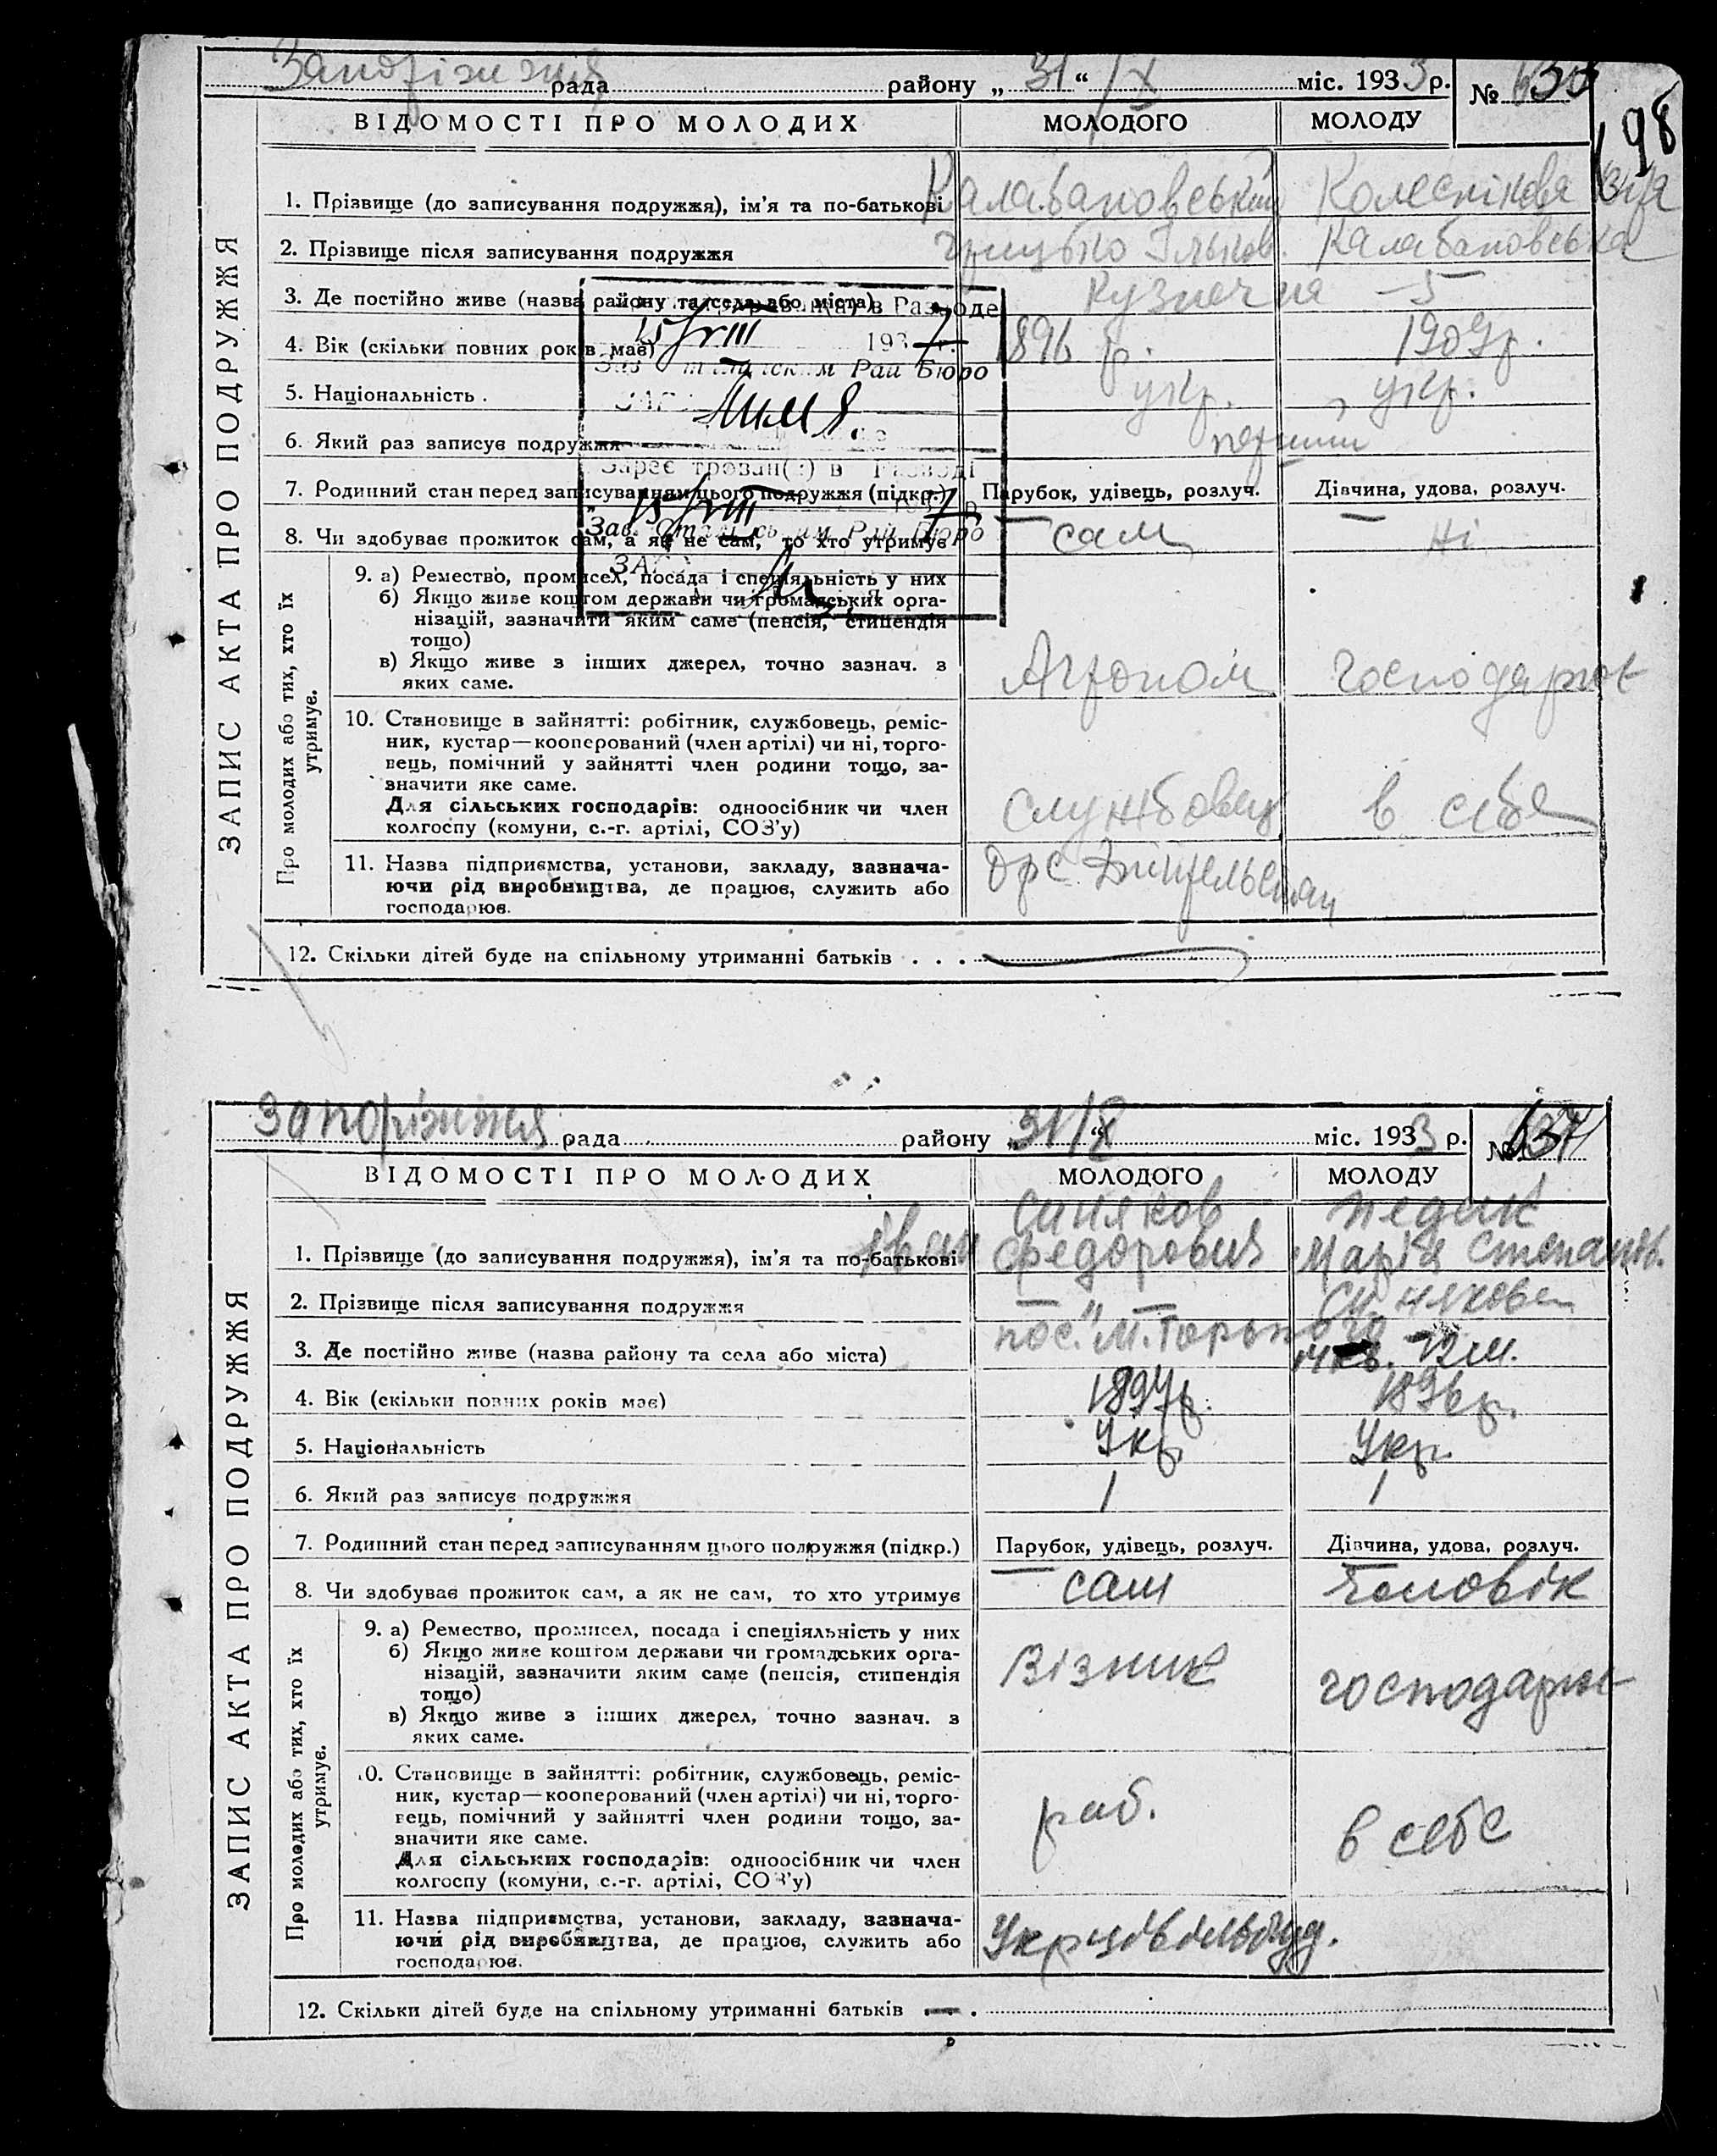 Запоріжжя рада району „ 31 “ /X міс. 1933 р. № 633
198
ВІДОМОСТІ ПРО МОЛОДИХ МОЛОДОГО МОЛОДУ
ЗАПИС АКТА ПРО ПОДРУЖЖЯ
1. Прізвище (до записування подружжя), ім'я та по-батькові Калабановський Колеснікова Віра
2. Прізвище після записування подружжя Грицько Ільков. Калабановська
3. Де постійно живе (назва району та села або міста) Кузнечна – 5
4. Вік (скільки повних років має) 1896 р. 1909р.
5. Національність . укр. укр.
6. Який раз записує подружжя перший
7. Родинний стан перед записуванням цього подружжя (підкр.) Парубок, удівець, розлуч. Дівчина, удова, розлуч.
8. Чи здобуває прожиток сам, а як не сам, то хто утримує сам Ні
в Разводе
15/VIII 1937 г.
Рай Бюро
ЗАГС
Зареєстрован( ) в Разводі
15/VIII 1937 р.
Зав. Сталінським Рай Бюро
ЗАГС
Про молодих або тих, хто їх утримує.
9. а) Ремество, промисел, посада і спеціяльність у них
б) Якщо живе коштом держави чи громадських орга-
нізацій, зазначити яким саме (пенсія, стипендія
тощо)
в) Якщо живе з інших джерел, точно зазнач. з
яких саме. Агроном господарює
10. Становище в зайнятті: робітник, службовець, реміс-
ник, кустар—кооперований (член артілі) чи ні, торго-
вець, помічний у зайнятті член родини тощо, за-
значити яке саме.
Для сільських господарів: одноосібник чи член
колгоспу (комуни, с.-г. артілі, СОЗ'у) Службовец в себе
11. Назва підприємства, установи, закладу, зазнача-
ючи рід виробництва, де працює, служить або
господарює. Орс
12. Скільки дітей буде на спільному утриманні батьків . . .
Запоріжжя рада району „ 31/X “ міс. 1933 р. № 634
ВІДОМОСТІ ПРО МОЛОДИХ МОЛОДОГО МОЛОДУ
ЗАПИС АКТА ПРО ПОДРУЖЖЯ
Синяков Педик
1. Прізвище (до записування подружжя), ім'я та по-батькові Іван Федорович Марія Степанів.
2. Прізвище після записування подружжя — „ — Синякова
3. Де постійно живе (назва району та села або міста) пос. М. Горького
14кв. 12 м.
4. Вік (скільки повних років має) 1894р. 1896р.
5. Національність Укр. Укр.
6. Який раз записує подружжя 1 1
7. Родинний стан перед записуванням цього подружжя (підкр.) Парубок, удівець, розлуч. Дівчина, удова, розлуч.
8. Чи здобуває прожиток сам, а як не сам, то хто утримує сам Чоловік
Про молодих або тих, хто їх утримує.
9. а) Ремество, промисел, посада і спеціяльність у них
б) Якщо живе коштом держави чи громадських орга-
нізацій, зазначити яким саме (пенсія, стипендія
тощо)
в) Якщо живе з інших джерел, точно зазнач. з
яких саме. Візник господарює
10. Становище в зайнятті: робітник, службовець, реміс-
ник, кустар—кооперований (член артілі) чи ні, торго-
вець, помічний у зайнятті член родини тощо, за-
значити яке саме.
Для сільських господарів: одноосібник чи член
колгоспу (комуни, с.-г. артілі, СОЗ'у) раб. в себе
11. Назва підприємства, установи, закладу, зазнача-
ючи рід виробництва, де працює, служить або
господарює. Укрцівільбуд.
12. Скільки дітей буде на спільному утриманні батьків — .